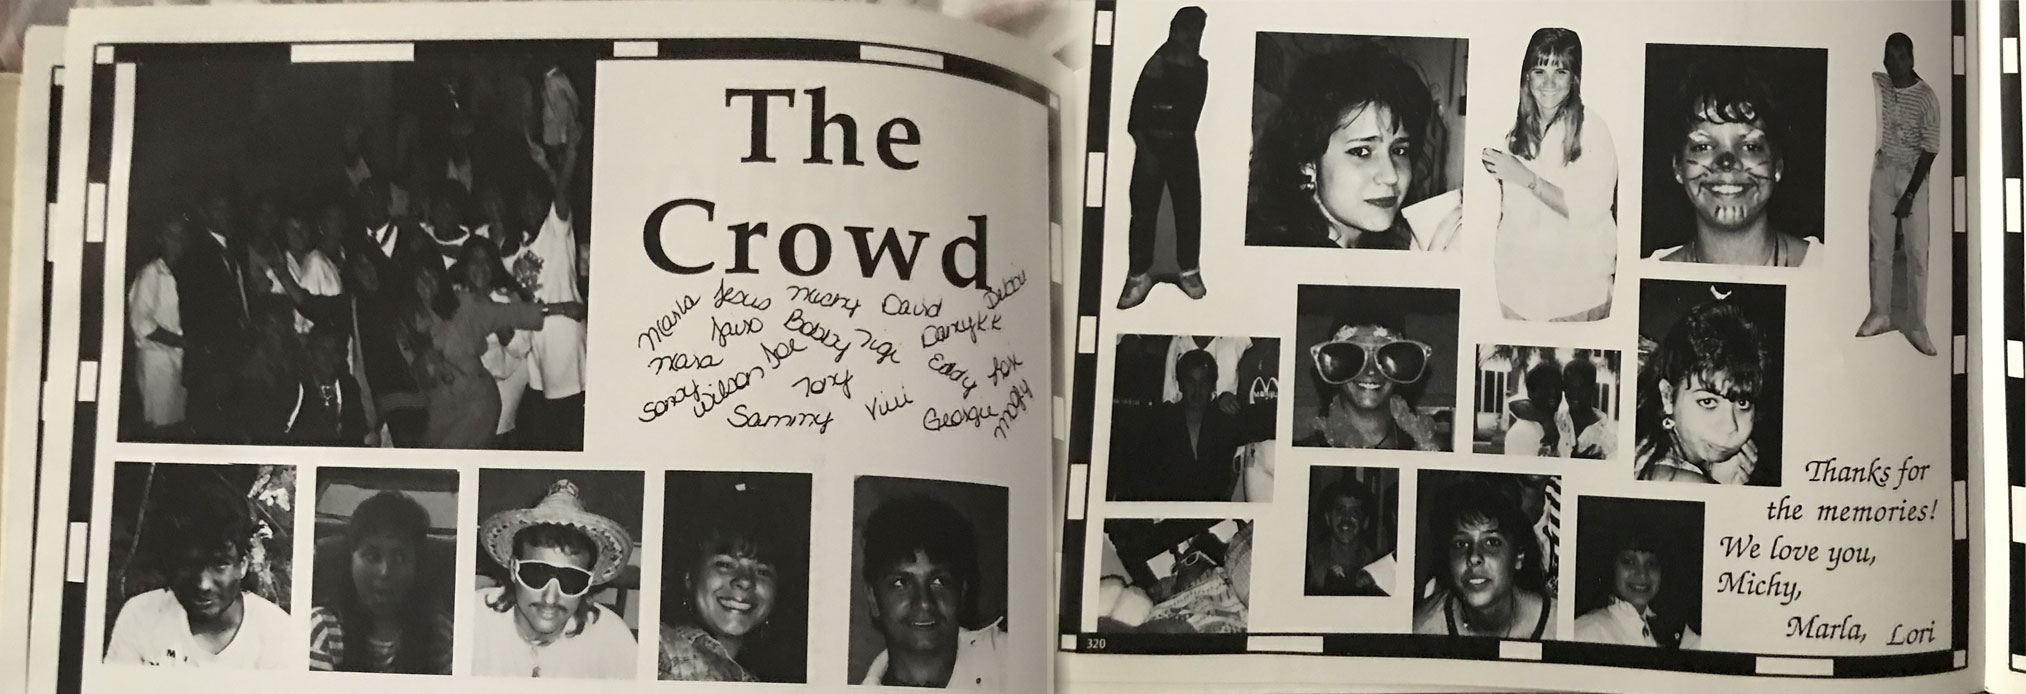 The
Crowd
Marla Jesus Michy David Debbie
Mara Jairo Bobby Tige Dany KK
Sandy Wilson Joe Tony Eddy Lori
Sammy Vivi Georgie
Thanks for
the memories!
We love you,
Michy,
Marla, Lori
320